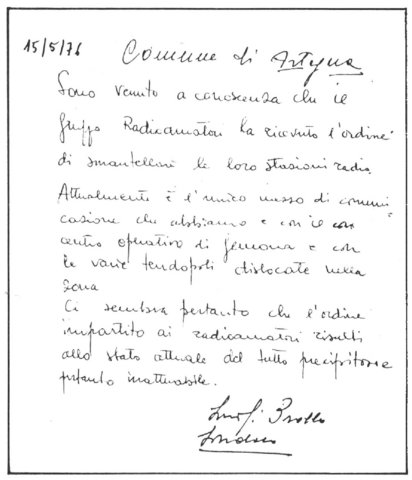 15/5/76 Comune di Artegna
Sono venuto a conoscenza che il
gruppo Radioamatori ha ricevuto l'ordine
di smantellare le loro stazioni radio.
Attualmente è l'unico mezzo di comuni
cazione che abbiamo e con il
centro operativo di Gemona e con
le varie tendopoli dislocate nella
zona
Ci sembra pertanto che l'ordine
impartito ai radioamatori risulti
allo stato attuale del tutto precipitoso e
pertanto inattuabile.
Sindaco